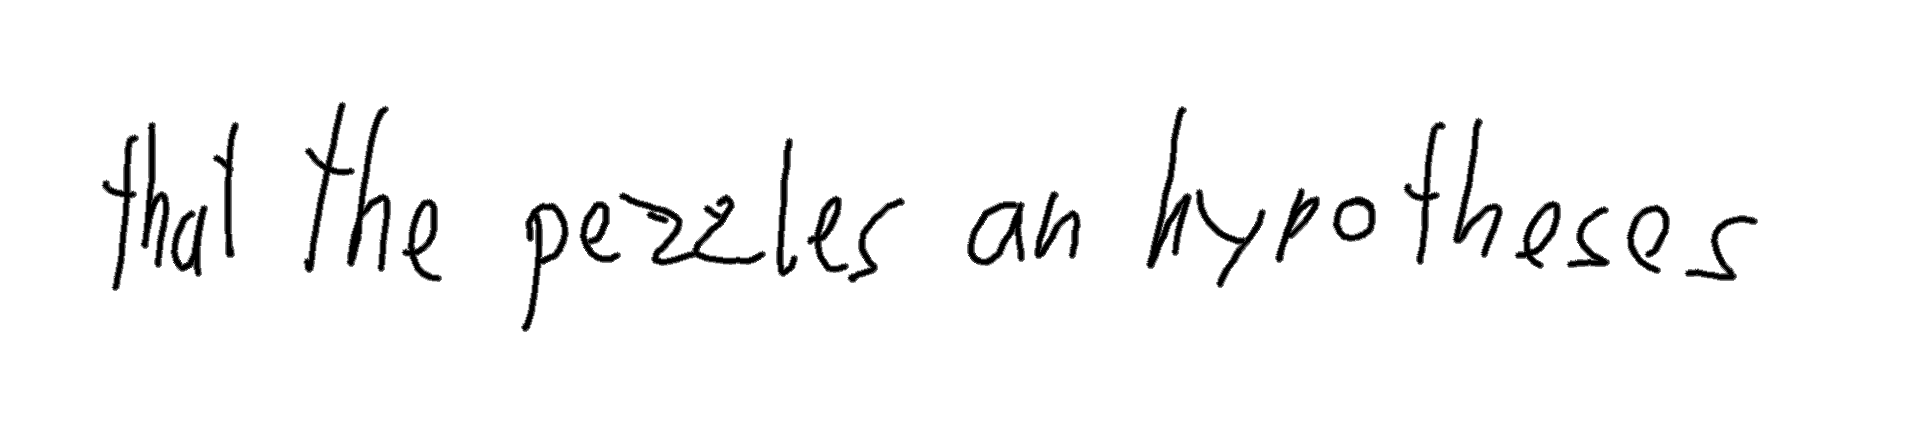 that the pezzles an hypotheses